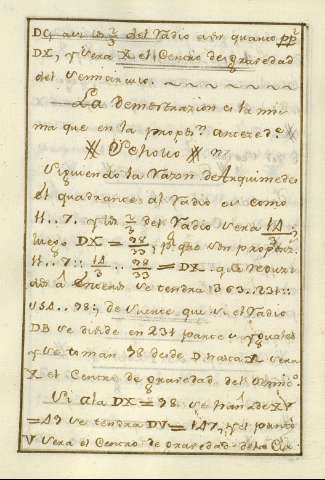 DC, assi los 2/3 del Radio a un quarto pp.r
DX, y sera X el Centro de gravedad
del Semicirculo.
La Demostrazion es la mis
ma que en la propos.n anteced.e
Scholio
Siguiendo la Razon de Arquimedes
el quadrante al Radio es como
11..7. y los 2/3 del Radio sera 14/3
luego DX = 98/33, p.r que son propor.s
11..7:: 14/3 .. 98/33 = DX. que reduci
dos â Enteros se tendra 363..231::
154..98: de suerte que si el Radio
DB se divide en 231 partes yguales
y se toman 98 desde D hasta X sera
X el Centro de gravedad del Semic.o
Si a la DX = 98 se añade XV
= 49 se tendra DV = 147, y el punto
V sera el Centro de gravedad de la Cir